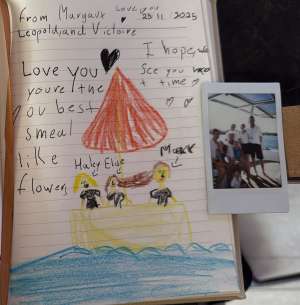 from Margaux
Love you
25 11 2025
Leopold, and Victoire
I hope, we
Love you
see you
t time
youre l the
ou best
smeal
like
flowers
Haley Elise
Mark